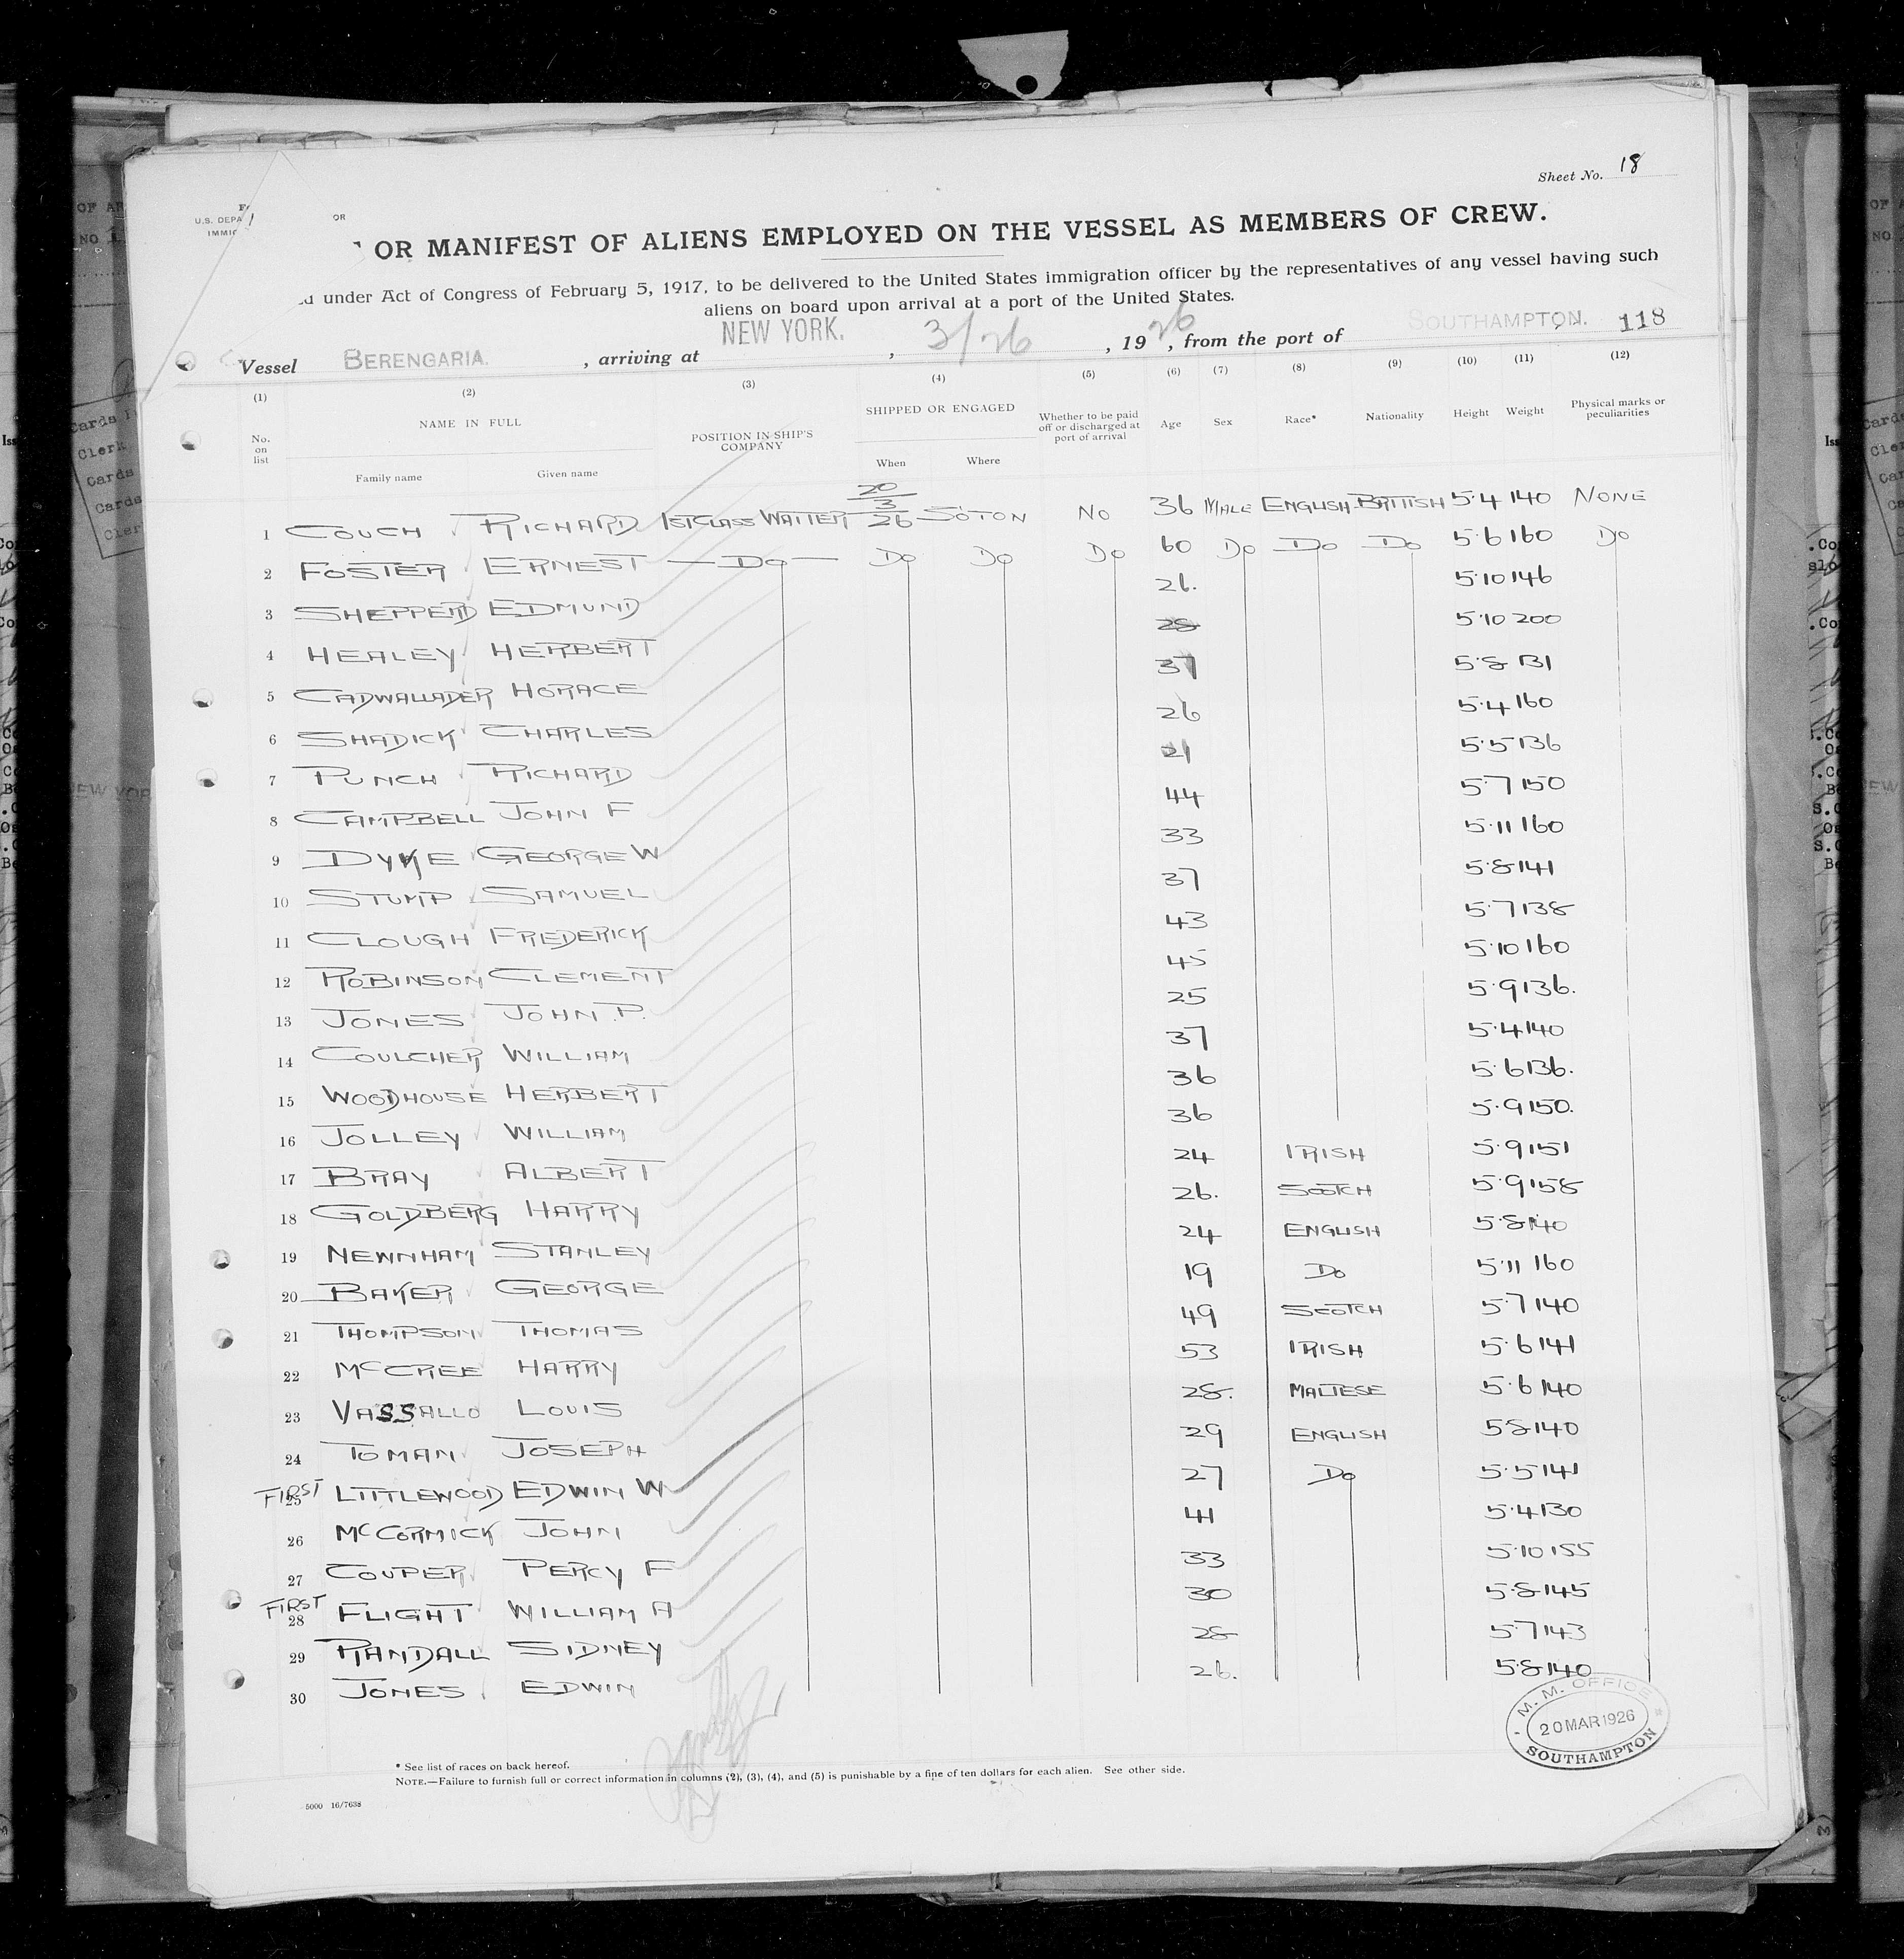 Sheet No. 18
U.S. DEPA
OR
IMMIG
OR MANIFEST OF ALIENS EMPLOYED ON THE VESSEL AS MEMBERS OF CREW.
under Act of Congress of February 5, 1917, to be delivered to the United States immigration officer by the representatives of any vessel having such
aliens on board upon arrival at a port of the United States.
Vessel BERENGARIA. , arriving at NEW YORK. , 3/26 , 1926 , from the port of SOUTHAMPTON. 118
(1) (2) (3) (4) (5) (6) (7) (8) (9) (10) (11) (12)
No. on list NAME IN FULL Family name Given name POSITION IN SHIP'S COMPANY SHIPPED OR ENGAGED When Where Whether to be paid off or discharged at port of arrival Age Sex Race* Nationality Height Weight Physical marks or peculiarities
1 COUCH RICHARD 1ST CLASS WAITER 20/3/26 SOTON NO 36 MALE ENGLISH BRITISH 5.4 140 NONE
2 FOSTER ERNEST — DO — DO DO DO 60 DO DO DO 5.6 160 DO
3 SHEPPERD EDMUND 26. 5.10 146
4 HEALEY HERBERT 28 5.10 200
5 CADWALLADER HORACE 37 5.8 131
6 SHADICK CHARLES 26 5.4 160
7 PUNCH RICHARD 21 5.5 136
8 CAMPBELL JOHN F 44 5.7 150
9 DYKE GEORGE W 33 5.11 160
10 STUMP SAMUEL 37 5.8 141
11 CLOUGH FREDERICK 43 5.7 138
12 ROBINSON CLEMENT 45 5.10 160
13 JONES JOHN P. 25 5.9 136.
14 COULCHER WILLIAM 37 5.4 140
15 WOODHOUSE HERBERT 36 5.6 136.
16 JOLLEY WILLIAM 36 5.9 150.
17 BRAY ALBERT 24 IRISH 5.9 151
18 GOLDBERG HARRY 26. SCOTCH 5.9 158
19 NEWNHAM STANLEY 24 ENGLISH 5.8 140
20 BAKER GEORGE 19 DO 5.11 160
21 THOMPSON THOMAS 49 SCOTCH 5.7 140
22 McCREE HARRY 53 IRISH 5.6 141
23 VASSALLO LOUIS 28. MALTESE 5.6 140
24 TOMAN JOSEPH 29 ENGLISH 5 8 140
FIRST 25 LITTLEWOOD EDWIN W 27 DO 5.5 141
26 McCORMICK JOHN 41 5.4 130
27 COUPER PERCY F 33 5.10 155
FIRST 28 FLIGHT WILLIAM A 30 5.8 145
29 RANDALL SIDNEY 28 5.7 143
30 JONES EDWIN 26. 5.8 140
M. M. OFFICE
20 MAR 1926
SOUTHAMPTON
* See list of races on back hereof.
NOTE.—Failure to furnish full or correct information in columns (2), (3), (4), and (5) is punishable by a fine of ten dollars for each alien. See other side.
5000 16/7638